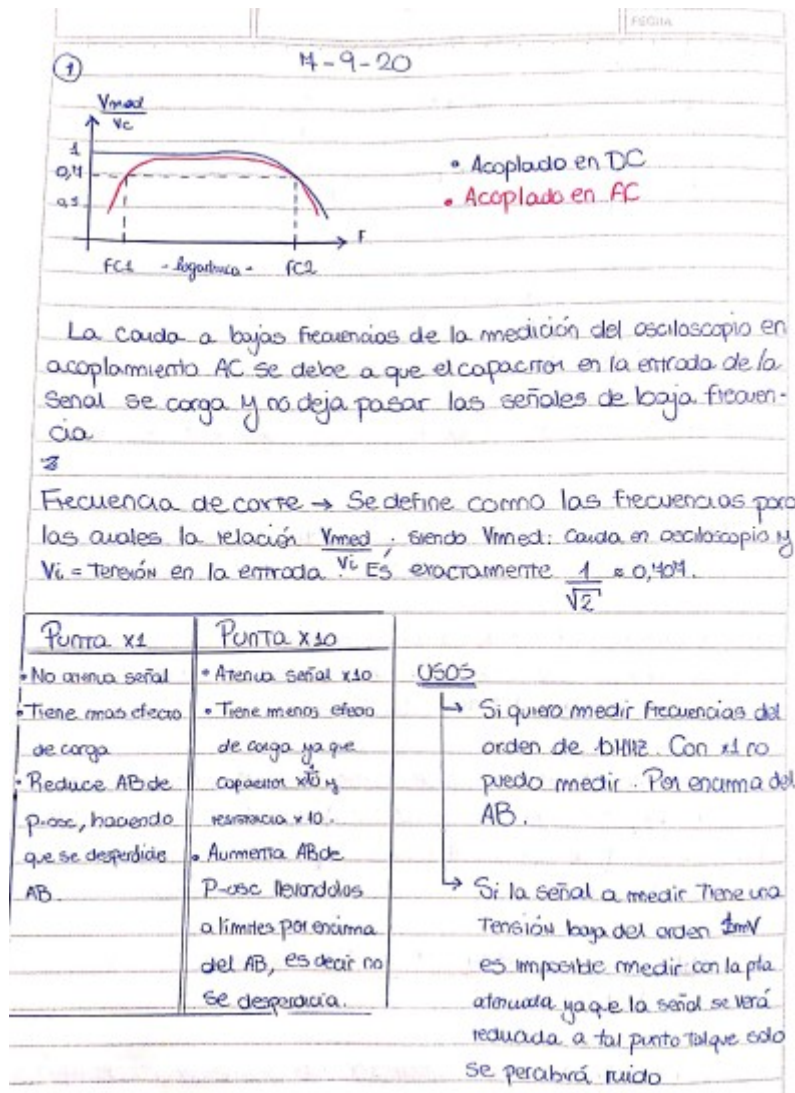 FECHA
1
7-9-20
Vmed
Vc
1
0,7
0,1
F
FC1 - logaritmica - FC2
• Acoplado en DC
• Acoplado en AC
La caida a bajas frecuencias de la medición del osciloscopio en
acoplamiento AC se debe a que el capacitor en la entrada de la
señal se carga y no deja pasar las señales de baja frecuen-
cia
Frecuencia de corte → Se define como las frecuencias para
las cuales la relación Vmed/Vi, siendo Vmed: Caida en osciloscopio y
Vi = Tensión en la entrada. Es exactamente 1/√2 ≈ 0,707.
Punta x1
• No atenua señal
• Tiene mas efecto
de carga
• Reduce AB de
p-osc, haciendo
que se desperdicie
AB.
Punta x10
• Atenua señal x10
• Tiene menos efecto
de carga ya que
capacitor x10 y
resistencia x10.
• Aumenta AB de
P-osc llevandolos
a limites por encima
del AB, es decir no
se desperdicia.
USOS
→ Si quiero medir frecuencias del
orden de MHz. Con x1 no
puedo medir. Por encima del
AB.
→ Si la señal a medir Tiene una
Tensión baja del orden 1mV
es imposible medir con la pta
atenuada ya q e la señal se verá
reducida a tal punto tal que solo
se percibirá ruido